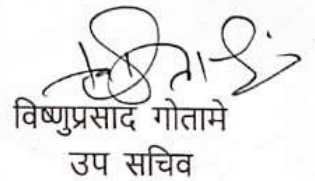 विष्णुप्रसाद गोतामे
उप सचिव